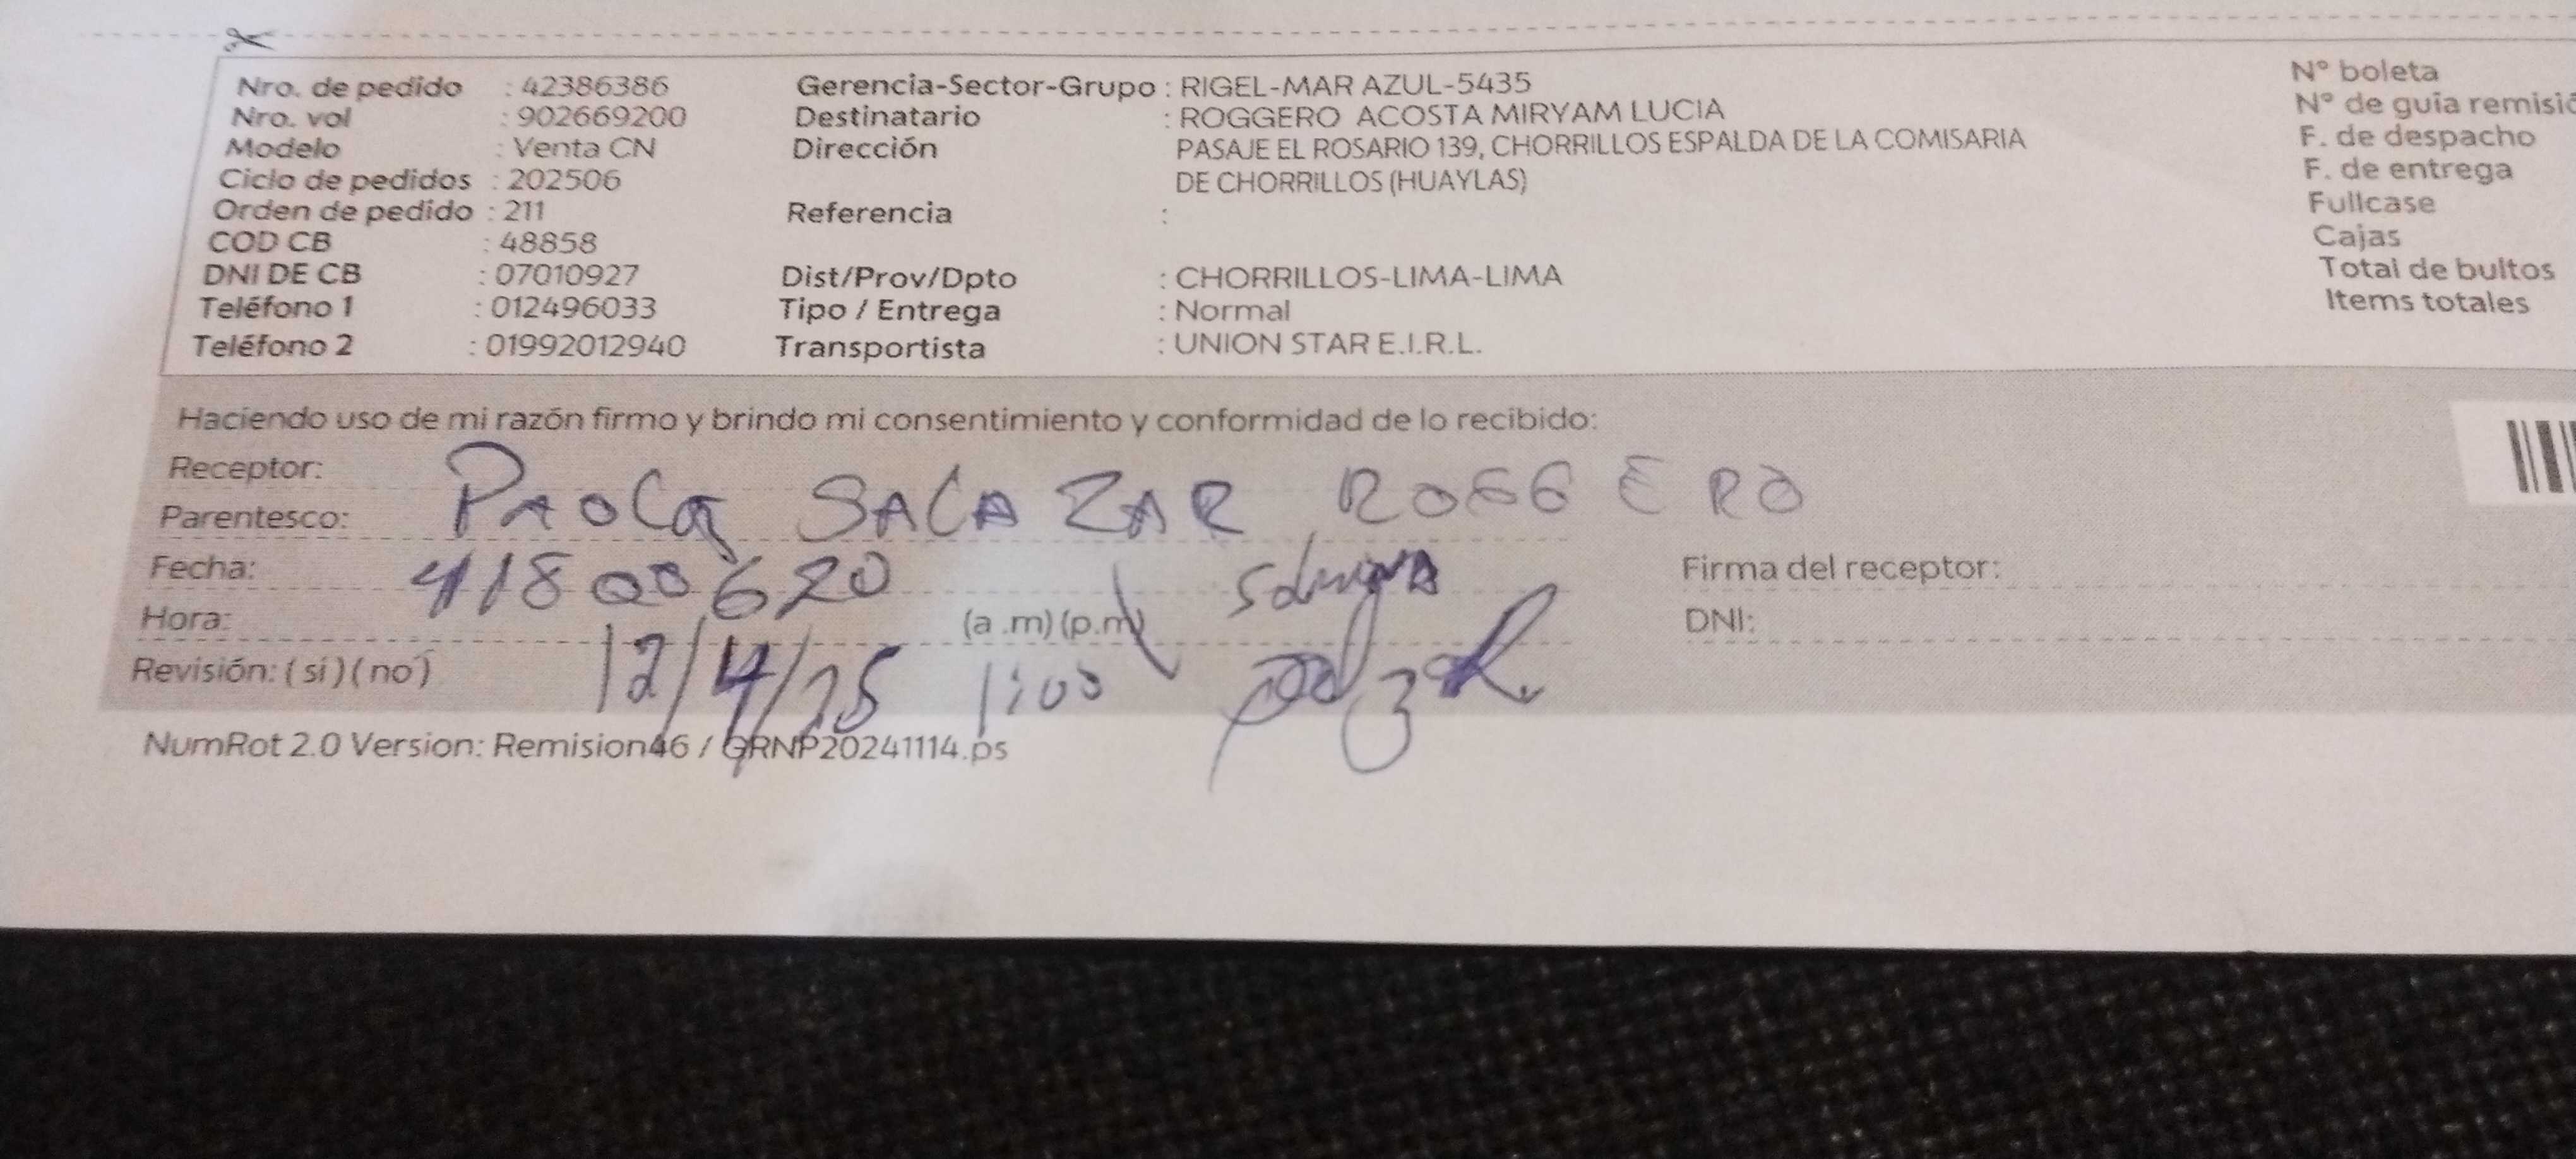 Nro. de pedido : 42386386 Gerencia-Sector-Grupo : RIGEL-MAR AZUL-5435 N° boleta
Nro. vol : 902669200 Destinatario : ROGGERO ACOSTA MIRYAM LUCIA N° de guía
Modelo : Venta CN Dirección PASAJE EL ROSARIO 139, CHORRILLOS ESPALDA DE LA COMISARIA F. de despacho
Ciclo de pedidos : 202506 DE CHORRILLOS (HUAYLAS) F. de entrega
Orden de pedido : 211 Referencia : Fullcase
COD CB : 48858 Cajas
DNI DE CB : 07010927 Dist/Prov/Dpto : CHORRILLOS-LIMA-LIMA Total de bultos
Teléfono 1 : 012496033 Tipo / Entrega : Normal Items totales
Teléfono 2 : 01992012940 Transportista : UNION STAR E.I.R.L.
Haciendo uso de mi razón firmo y brindo mi consentimiento y conformidad de lo recibido:
Receptor: PAOLA SALAZAR ROGGERO
Parentesco:
Fecha: 41800620 Firma del receptor:
Hora: (a .m) (p.m) DNI:
Revisión: ( si ) ( no ) 12/4/25 1:00
NumRot 2.0 Version: Remision46 / GRNP20241114.ps